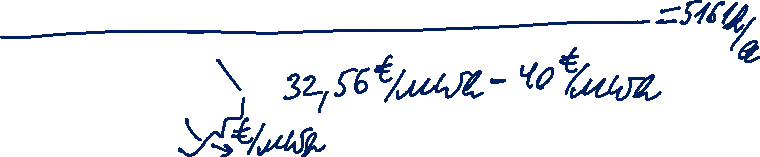 = 5161 h/a
32,56 €/MWh - 40 €/MWh
€/MWh